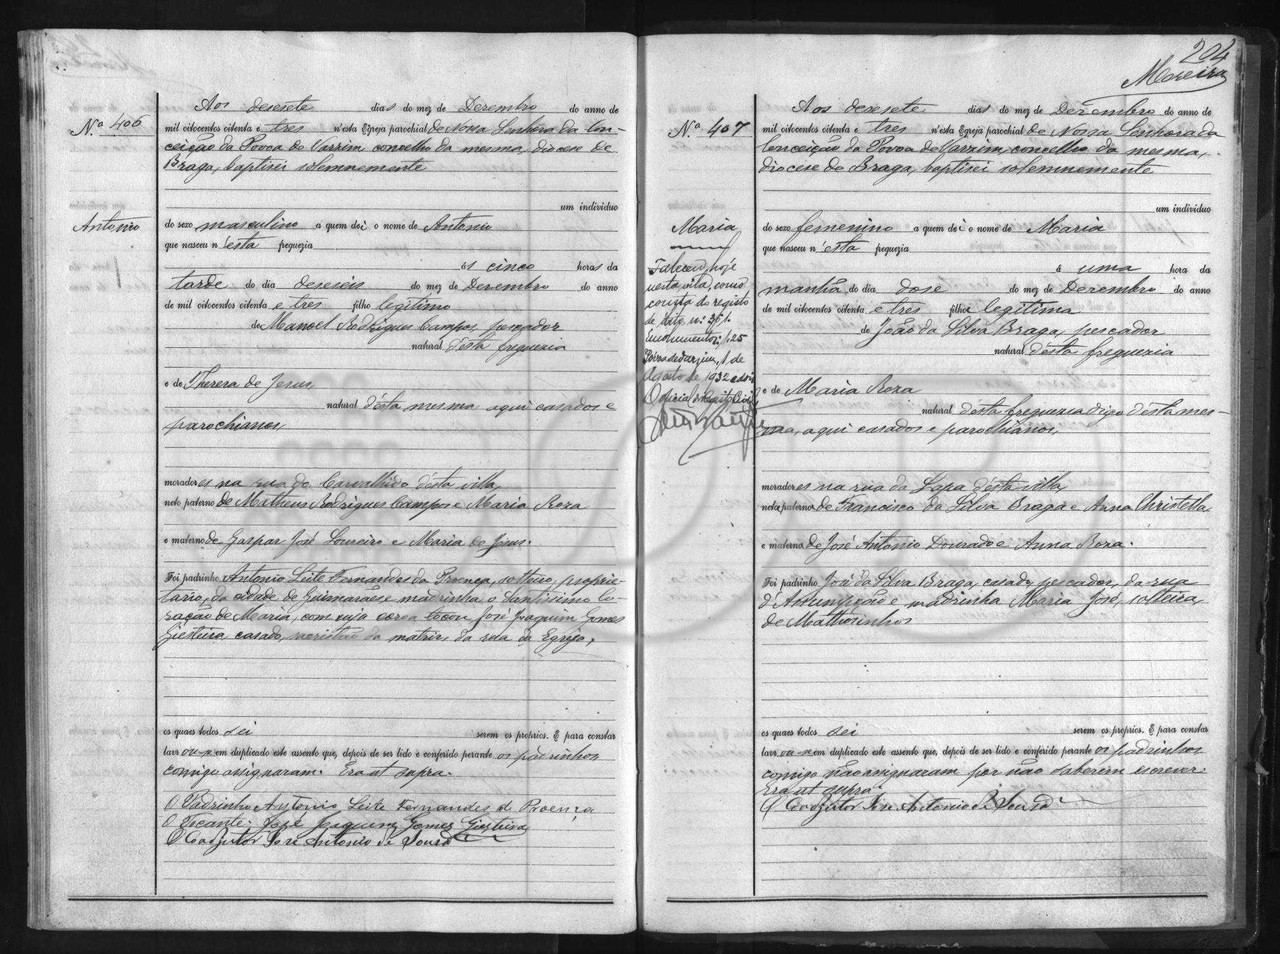 Nº 406
Antonio
Aos desesete dias do mez de Dezembro do anno de
mil oitocentos oitenta e tres n'esta Egreja parochial de Nossa Senhora da Con-
ceição da Povoa de Varzim, concelho da mesma, diocese de
Braga, baptisei solemnemente
um individuo
do sexo masculino a quem dei o nome de Antonio
que nasceu n'ésta freguezia
ás cinco horas da
tarde do dia deseseis do mez de Dezembro do anno
de mil oitocentos oitenta e tres filho legitimo
de Manoel Rodrigues Campos, pescador
natural d'ésta freguezia
e de Thereza de Jesus
natural d'ésta mesma aqui casados e
parochianos,
moradores na rua do Carvalhido d'ésta villa,
neto paterno de Matheus Rodrigues Campos e Maria Roza
e materno de Gaspar José Loureiro e Maria de Jesus.
Foi padrinho Antonio Leite Fernandes da Proença, solteiro, proprie-
tario, da cidade de Guimarães e madrinha o Santissimo Co-
ração de Maria, com cuja corôa tocou José Joaquim Gomes
Giesteira, casado, sacristão da matriz da sela da Egreja,
os quaes todos sei serem os proprios. E para constar
lavrou-se em duplicado este assento que, depois de ser lido e conferido perante os padrinhos
comigo assignaram. Era ut supra.
O Padrinho Antonio Leite Fernandes de Proença
O Tocante: José Joaquim Gomes Giesteira
O Coadjutor José Antonio de Sousa
204
Moreira
Nº 407
Maria
Faleceu hoje
nesta vila, como
consta do registo
de obito n.º 351.
Emolumentos, 1,25
Póvoa de Varzim, 1 de
Agosto de 1932 e dois
O oficial do Registo Civil,
Aos desesete dias do mez de Dezembro do anno de
mil oitocentos oitenta e tres n'esta Egreja parochial de Nossa Senhora da
Conceição da Povoa de Varzim, concelho da mesma,
diocese de Braga, baptisei solemnemente
um individuo
do sexo femenino a quem dei o nome de Maria
que nasceu n'ésta freguezia
á uma hora da
manhã do dia dose do mez de Dezembro do anno
de mil oitocentos oitenta e tres filha legitima
de João da Silva Braga, pescador
natural d'ésta freguezia
e de Maria Roza
natural desta freguezia digo d'ésta mes-
ma, aqui casados e parochianos,
moradores na rua da Lapa d'ésta villa,
neta paterna de Francisco da Silva Braga e Anna Christella
e materna de José Antonio Dourado e Anna Roza.
Foi padrinho José da Silva Braga, casado, pescador, da rua
d'Assumpção e madrinha Maria José, solteira,
de Mathosinhos
os quaes todos sei serem os proprios. E para constar
lavrou-se em duplicado este assento que, depois de ser lido e conferido perante os padrinhos
comigo não assignaram por não saberem escrever.
Era ut supra.
O Coadjutor José Antonio de Sousa